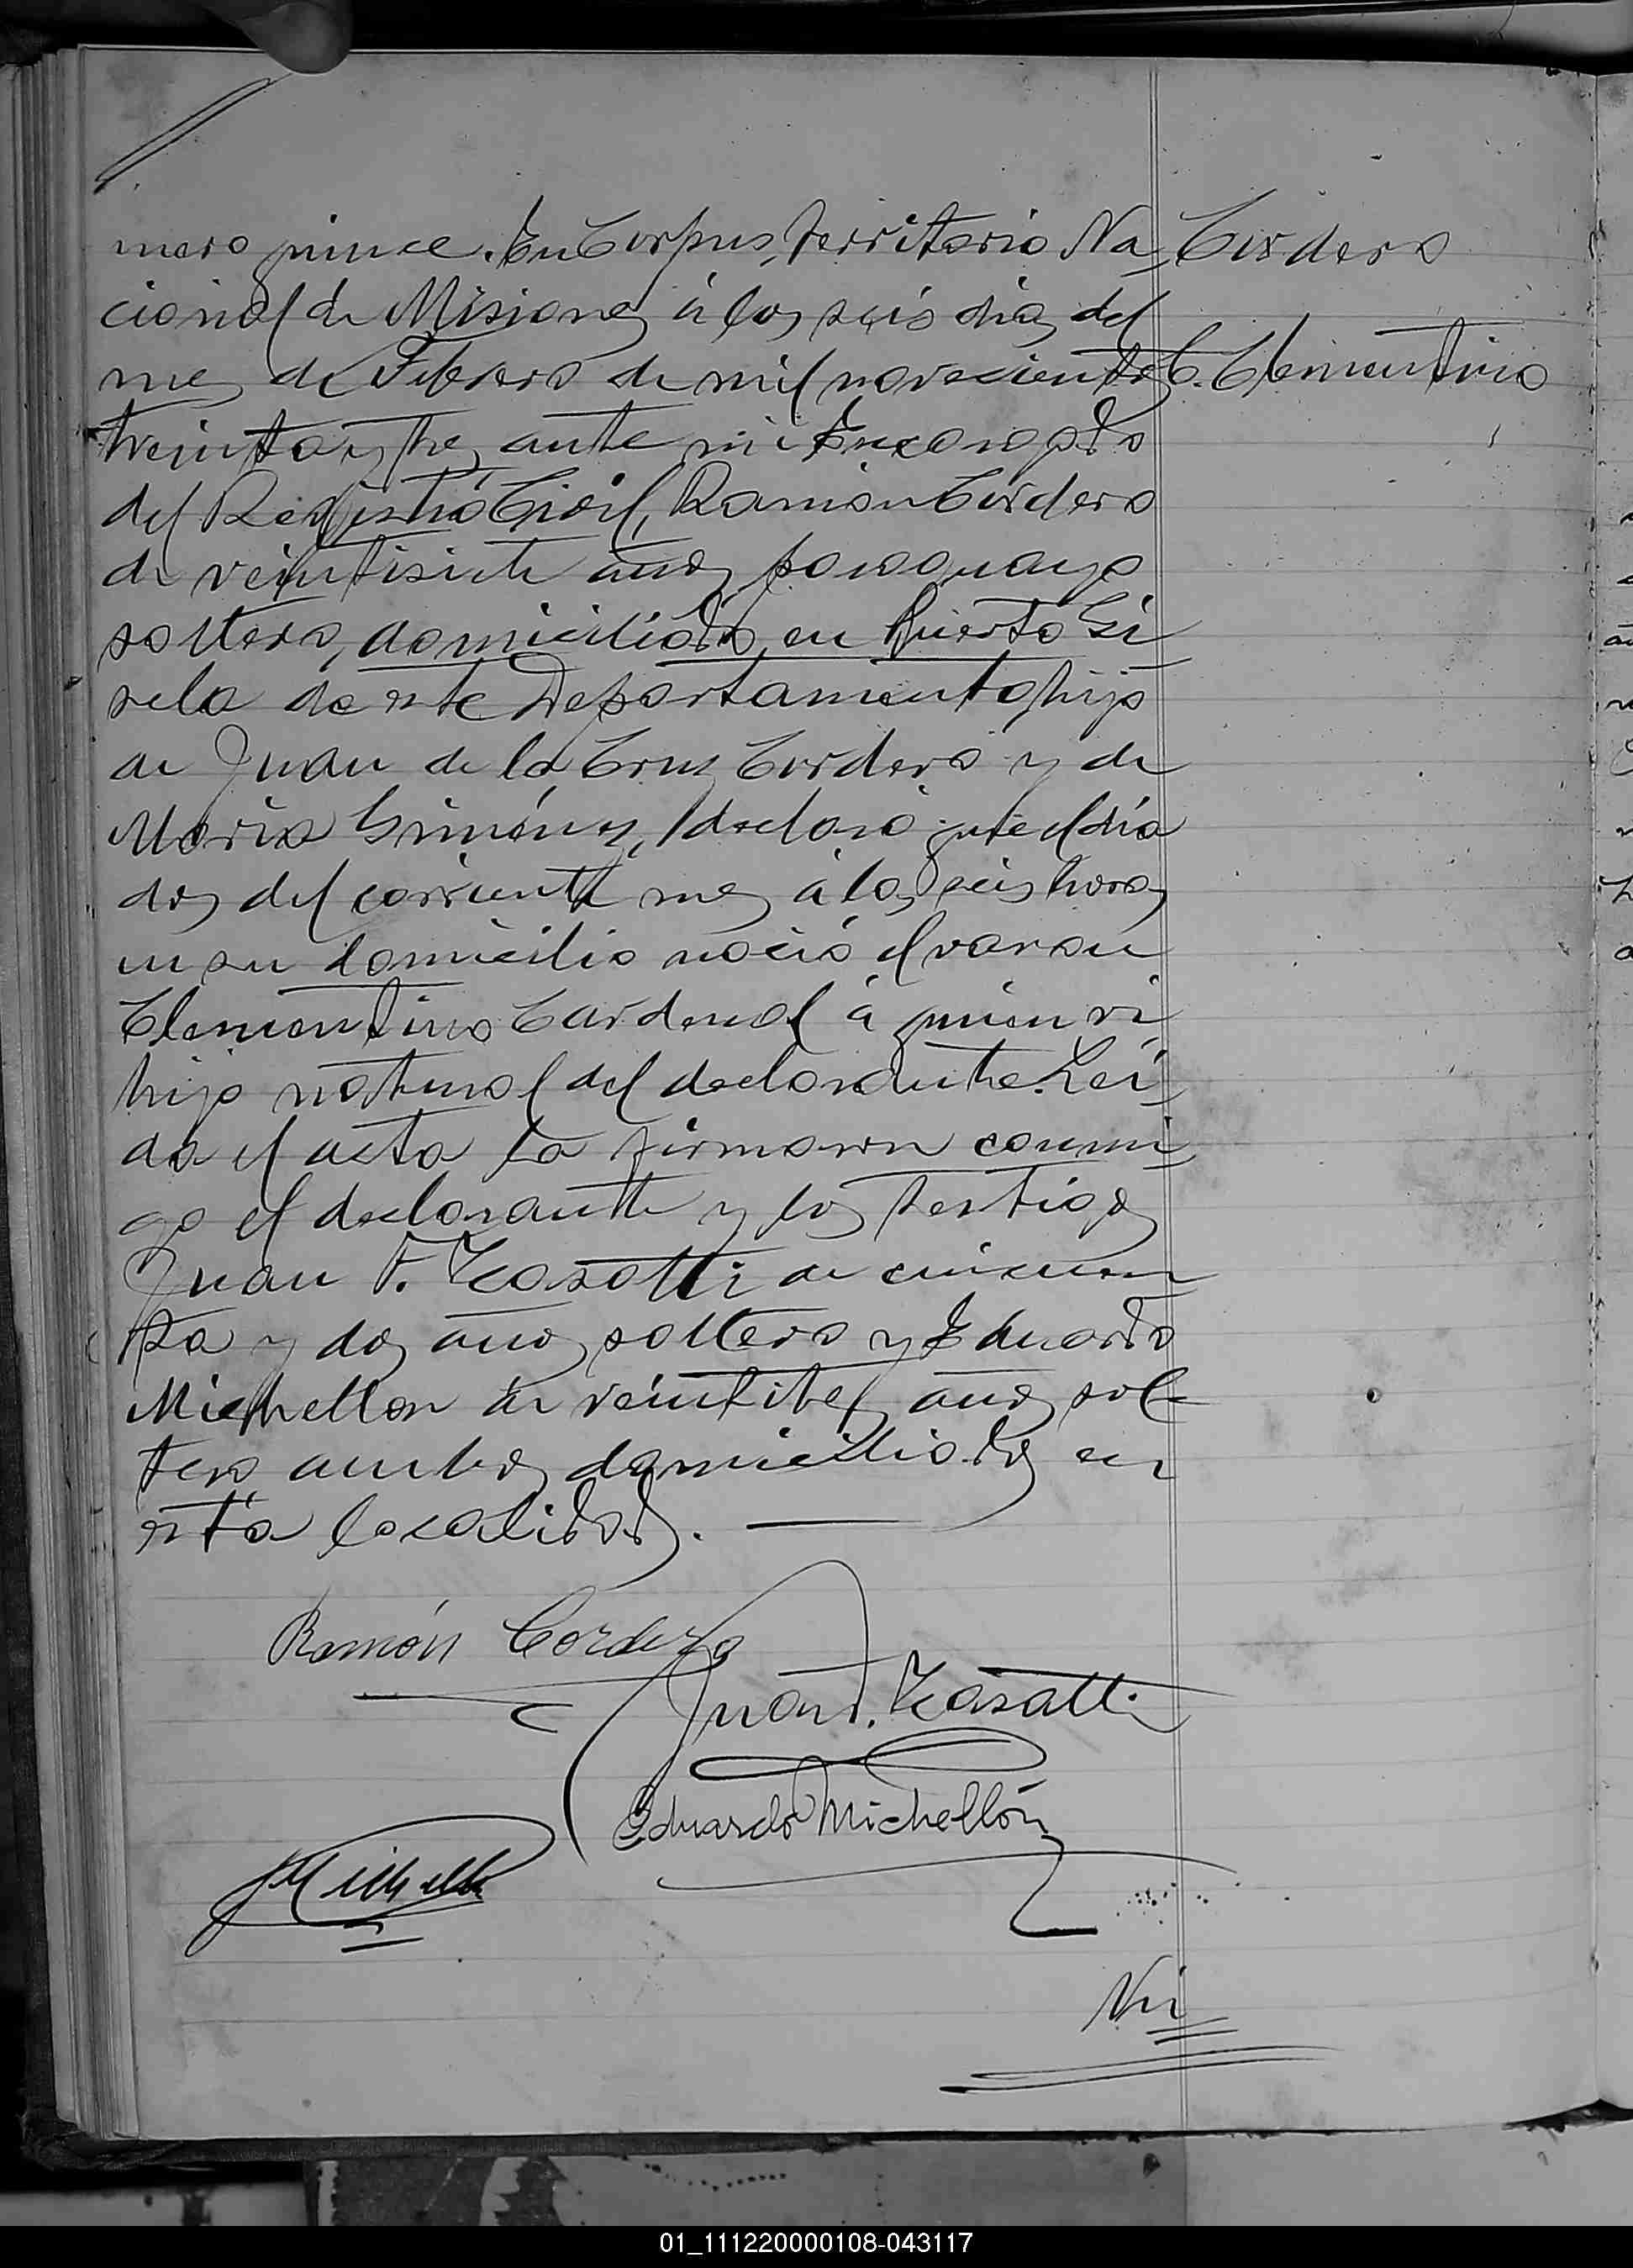 mero quince. En Corpus, Territorio Na
Cordero
cional de Misiones á los seis dias del
mes de Febrero de mil novecientos
C. Clementino
treinta y tres ante mi Encargado
del Registro Civil, Ramon Cordero
de veintisiete años, paraguayo
soltero, domiciliado en Puerto Gi
sela de este Departamento, hijo
de Juan de la Cruz Cordero y de
Maria Giménez, declaró que el día
dos del corriente mes á las seis horas
en su domicilio nació el varon
Clementino Cardenal á quien vi
hijo natural del declarante. Leí
da el acta la firmaron conmi
go el declarante y los testigos
Juan F. Casatti de cincuen
ta y dos años, soltero y Eduardo
Michellon de veintitres años, sol
tero, ambos domiciliados en
esta localidad.
Ramón Cordero
Juan F. Casatti
Eduardo Michellón
01_111220000108-043117